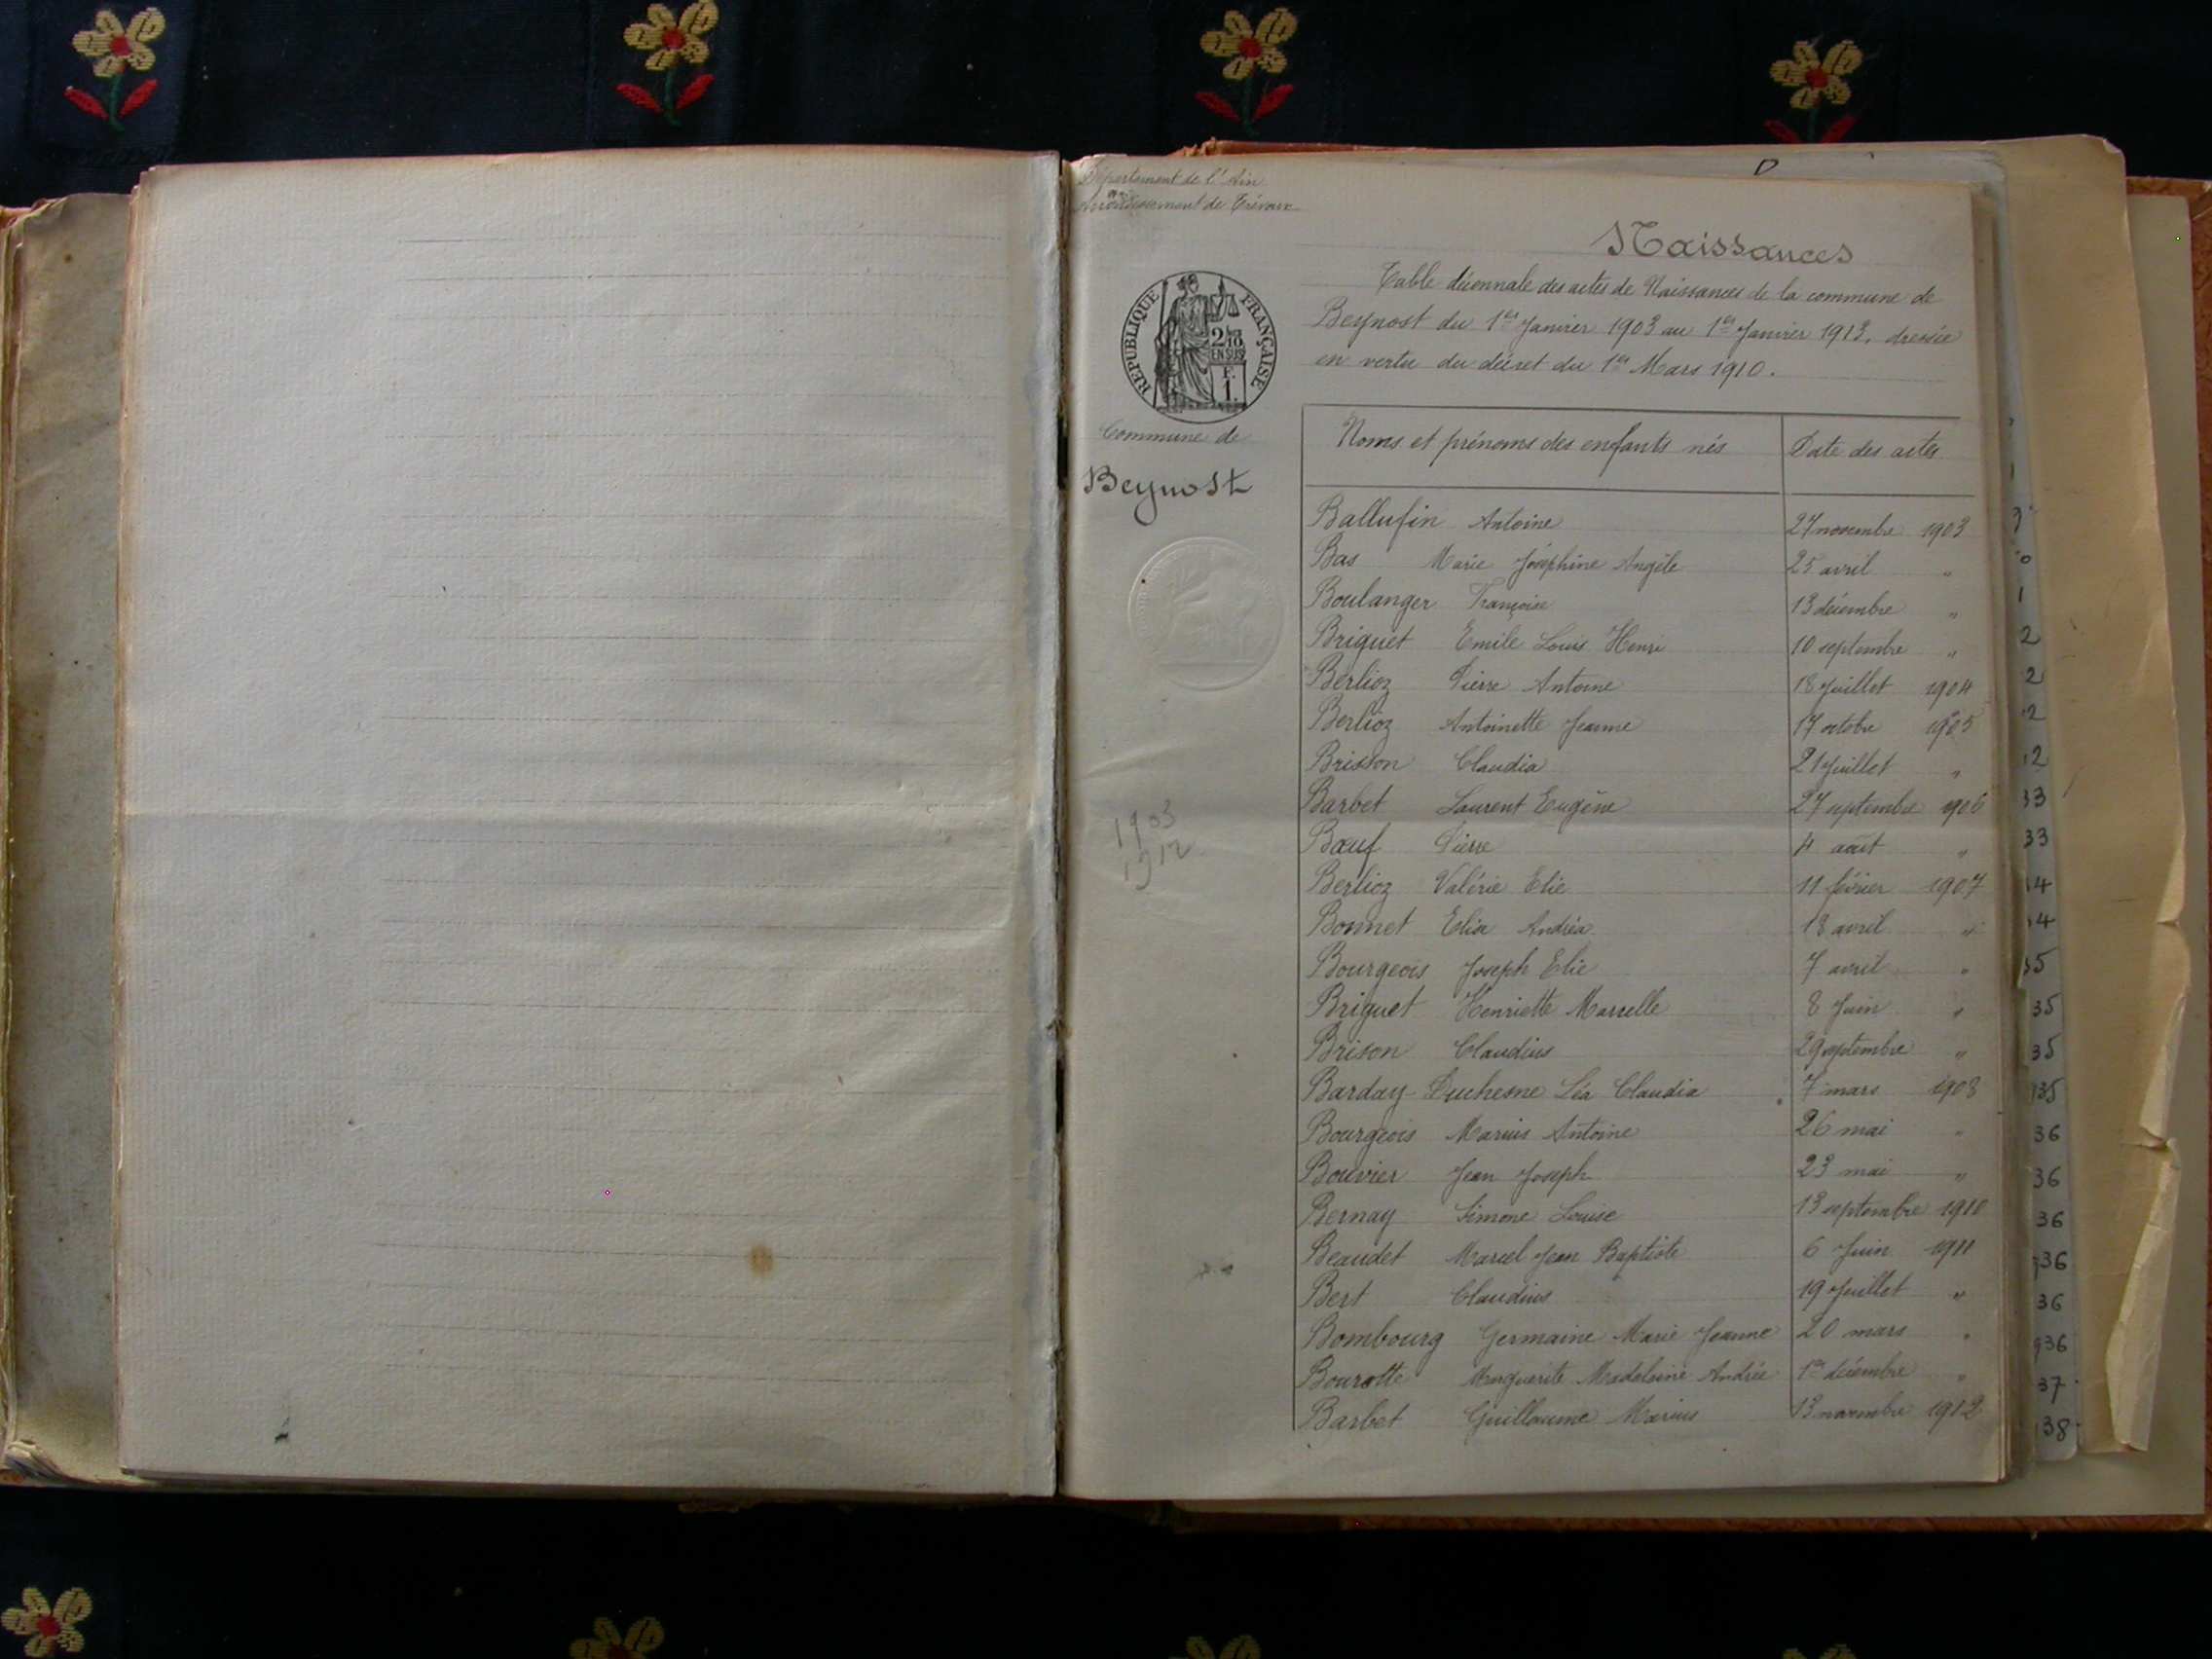 Département de l'Ain
Arrondissement de Trévoux
Naissances
Table décennale des actes de Naissances de la commune de
Beynost du 1er Janvier 1903 au 1er Janvier 1913, dressée
en vertu du décret du 1er Mars 1910.
REPUBLIQUE FRANÇAISE
2/10
EN SUS
F.
1.
Commune de
Beynost
1903
1912
Noms et prénoms des enfants nés Date des actes
Ballufin Antoine 27 novembre 1903
Bas Marie Joséphine Angèle 25 avril "
Boulanger Françoise 13 décembre "
Briguet Emile Louis Henri 10 septembre "
Berlioz Pierre Antoine 18 Juillet 1904
Berlioz Antoinette Jeanne 17 octobre 1905
Brisson Claudia 21 Juillet "
Barbet Laurent Eugène 27 septembre 1906
Bœuf Pierre 4 août "
Berlioz Valérie Elie 11 février 1907
Bonnet Elise Andréa 18 avril "
Bourgeois Joseph Elie 7 avril "
Briguet Henriette Marcelle 8 Juin "
Brison Claudius 29 septembre "
Barday-Duchesne Léa Claudia 7 mars 1908
Bourgeois Marius Antoine 26 mai "
Bouvier Jean Joseph 23 mai "
Bernay Simone Louise 13 septembre 1910
Beaudet Marcel Jean Baptiste 6 Juin 1911
Bert Claudius 19 Juillet "
Bombourg Germaine Marie Jeanne 20 mars "
Bourotte Marguerite Madeleine Andrée 1er décembre "
Barbet Guillaume Marius 13 novembre 1912